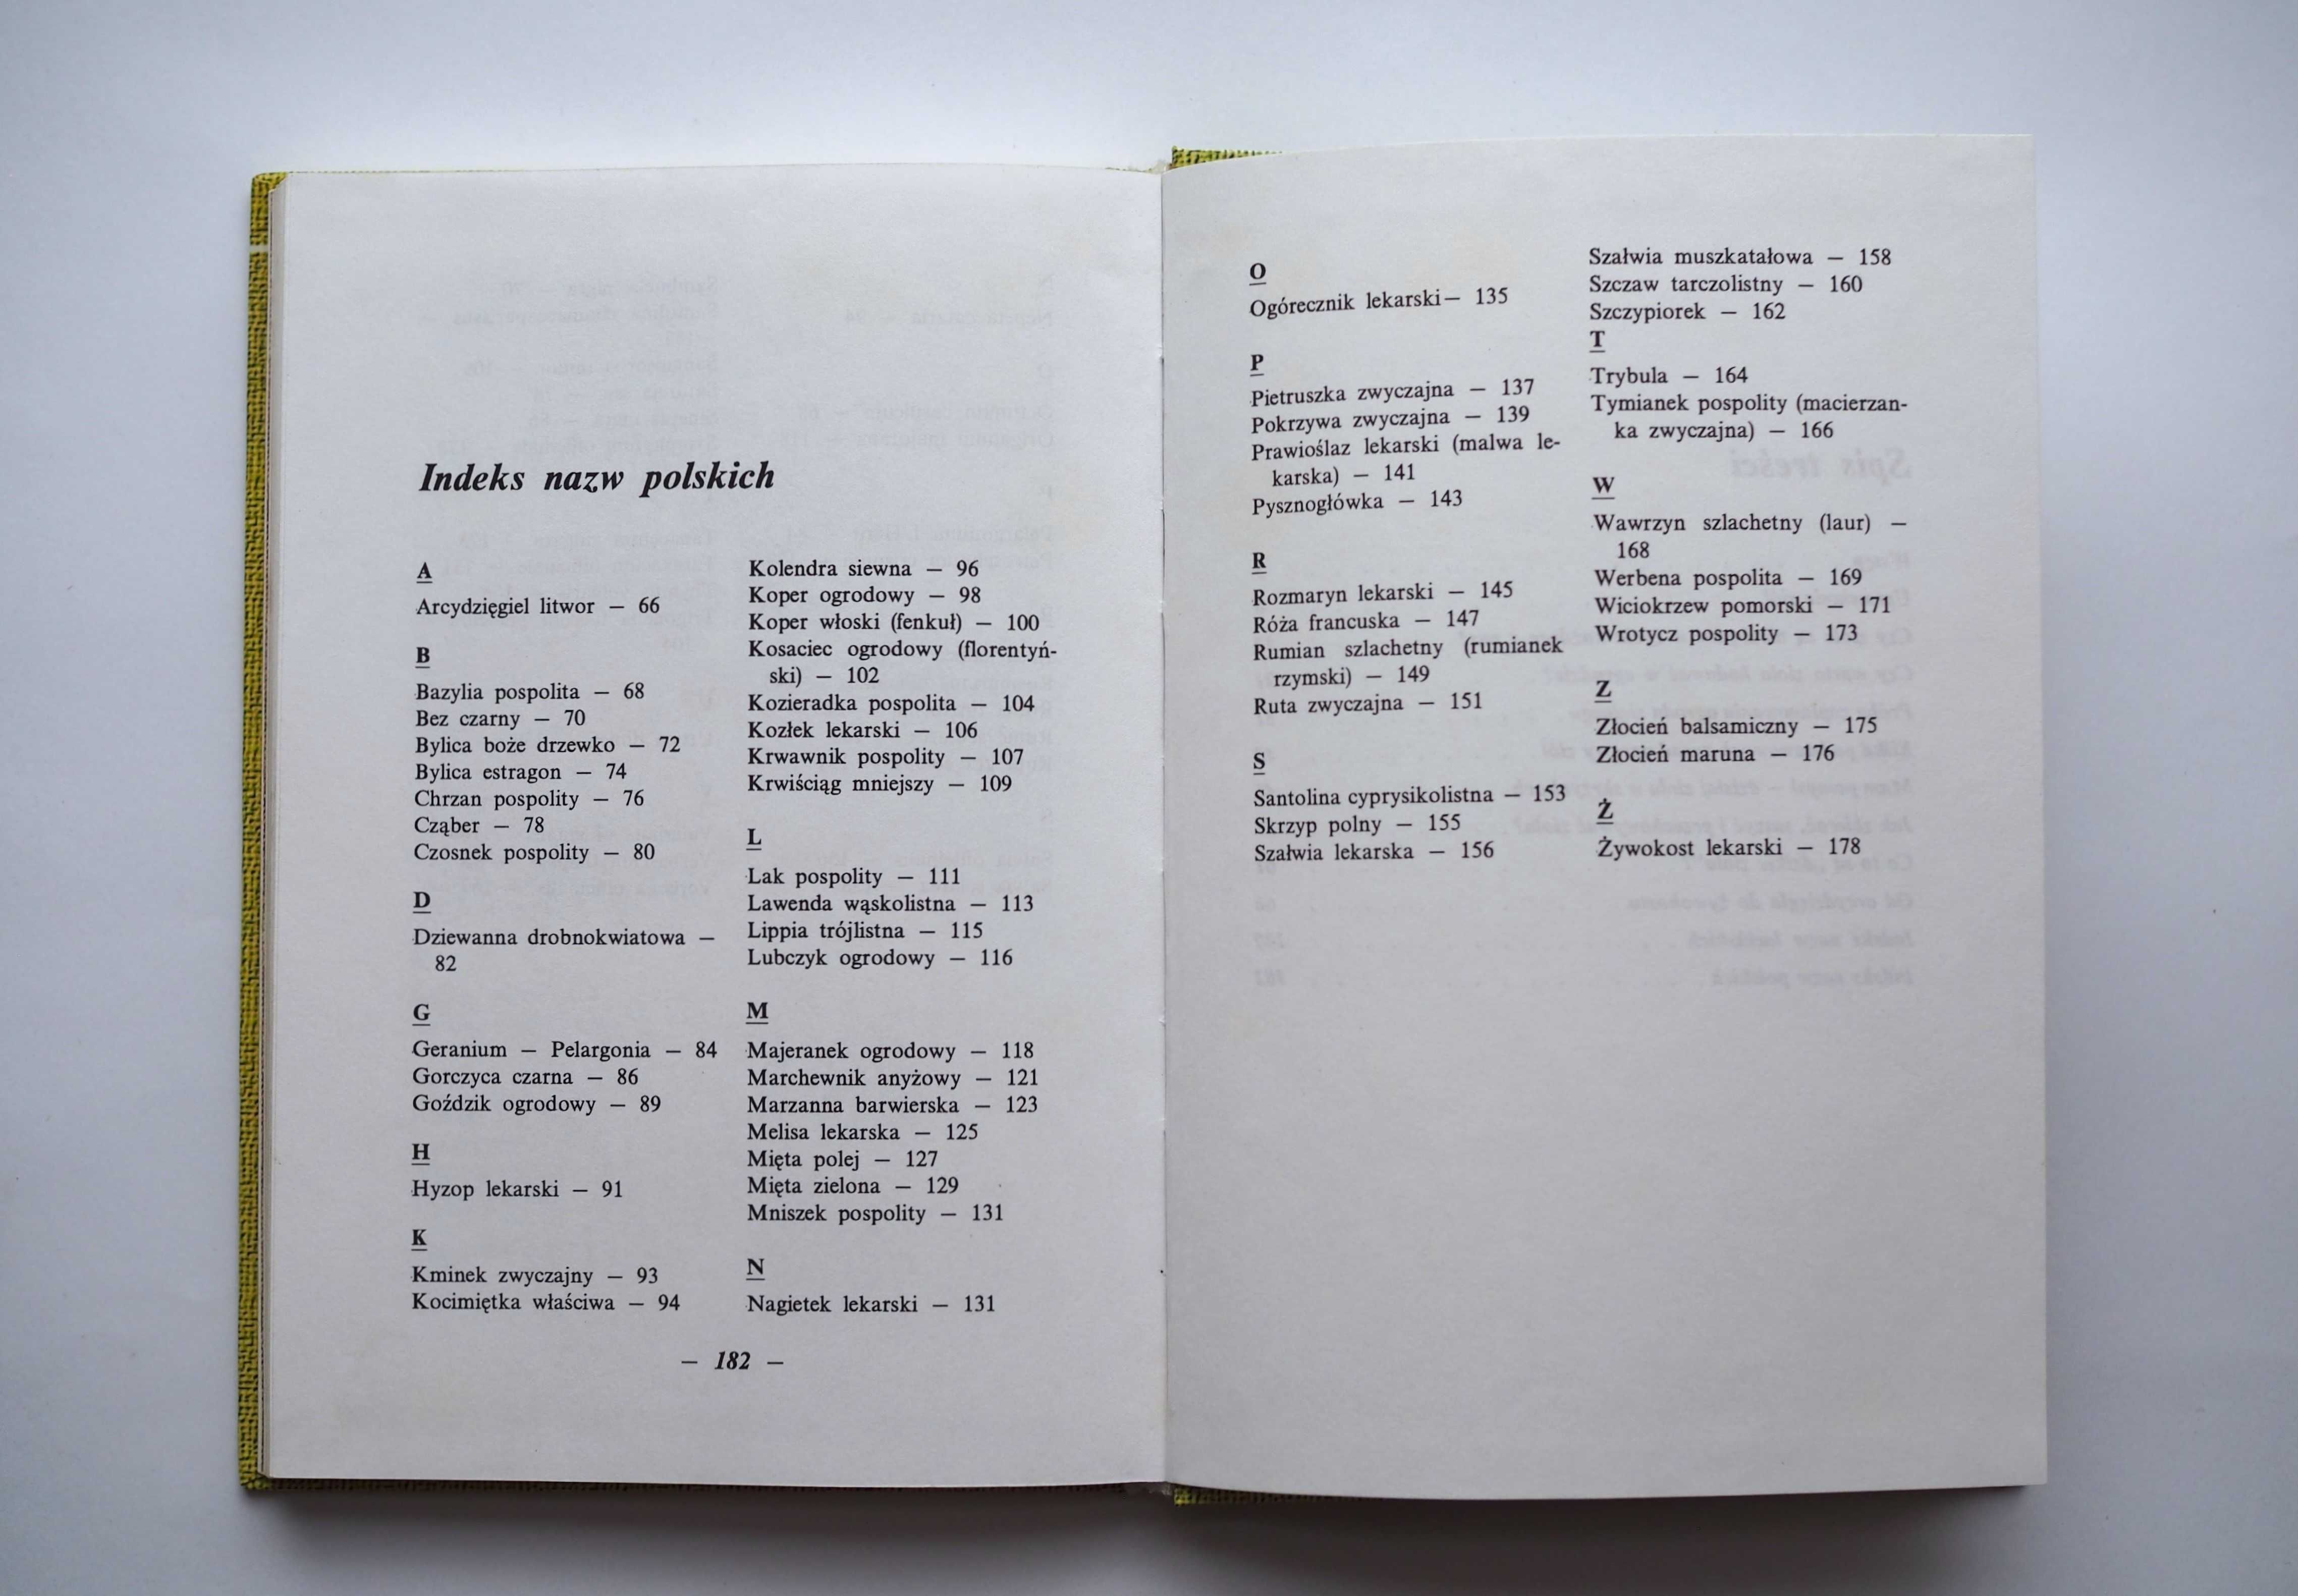 Indeks nazw polskich
A
Arcydzięgiel litwor — 66
B
Bazylia pospolita — 68
Bez czarny — 70
Bylica boże drzewko — 72
Bylica estragon — 74
Chrzan pospolity — 76
Cząber — 78
Czosnek pospolity — 80
D
Dziewanna drobnokwiatowa —
82
G
Geranium — Pelargonia — 84
Gorczyca czarna — 86
Goździk ogrodowy — 89
H
Hyzop lekarski — 91
K
Kminek zwyczajny — 93
Kocimiętka właściwa — 94
Kolendra siewna — 96
Koper ogrodowy — 98
Koper włoski (fenkuł) — 100
Kosaciec ogrodowy (florentyń-
ski) — 102
Kozieradka pospolita — 104
Kozłek lekarski — 106
Krwawnik pospolity — 107
Krwiściąg mniejszy — 109
L
Lak pospolity — 111
Lawenda wąskolistna — 113
Lippia trójlistna — 115
Lubczyk ogrodowy — 116
M
Majeranek ogrodowy — 118
Marchewnik anyżowy — 121
Marzanna barwierska — 123
Melisa lekarska — 125
Mięta polej — 127
Mięta zielona — 129
Mniszek pospolity — 131
N
Nagietek lekarski — 131
— 182 —
O
Ogórecznik lekarski— 135
P
Pietruszka zwyczajna — 137
Pokrzywa zwyczajna — 139
Prawioślaz lekarski (malwa le-
karska) — 141
Pysznogłówka — 143
R
Rozmaryn lekarski — 145
Róża francuska — 147
Rumian szlachetny (rumianek
rzymski) — 149
Ruta zwyczajna — 151
S
Santolina cyprysikolistna — 153
Skrzyp polny — 155
Szałwia lekarska — 156
Szałwia muszkatałowa — 158
Szczaw tarczolistny — 160
Szczypiorek — 162
T
Trybula — 164
Tymianek pospolity (macierzan-
ka zwyczajna) — 166
W
Wawrzyn szlachetny (laur) —
168
Werbena pospolita — 169
Wiciokrzew pomorski — 171
Wrotycz pospolity — 173
Z
Złocień balsamiczny — 175
Złocień maruna — 176
Ż
Żywokost lekarski — 178